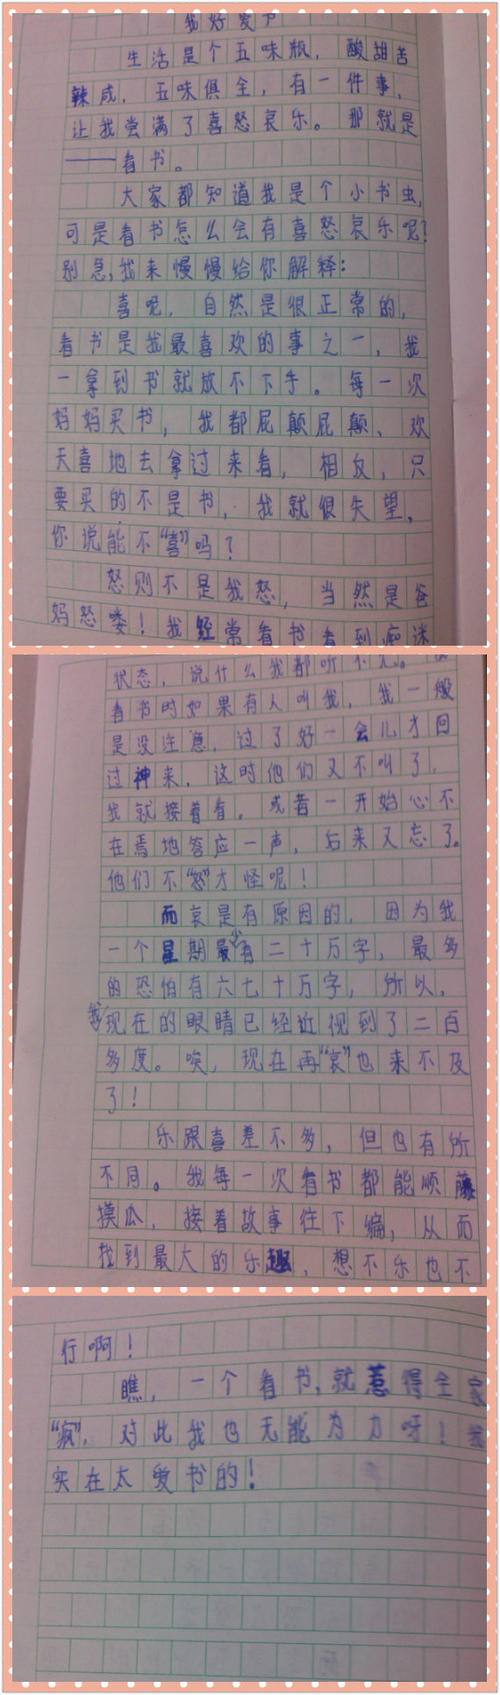 我好爱书
生活是个五味瓶，酸甜苦
辣咸，五味俱全，有一件事，
让我尝满了喜怒哀乐。那就是
——看书。
大家都知道我是个小书虫，
可是看书怎么会有喜怒哀乐呢？
别急，我来慢慢给你解释：
喜呢，自然是很正常的，
看书是我最喜欢的事之一，我
一拿到书就放不下手。每一次
妈妈买书，我都屁颠屁颠、欢
天喜地去拿过来看，相反，只
要买的不是书，我就很失望，
你说能不“喜”吗？
怒则不是我怒，当然是爸
妈怒喽！我经常看书看到痴迷
状态，说什么我都听不见。
看书时如果有人叫我，我一般
是没注意，过了好一会儿才回
过神来，这时他们又不叫了，
我就接着看。或者一开始心不
在焉地答应一声，后来又忘了。
他们不“怒”才怪呢！
而哀是有原因的，因为我
一个星期最少有二十万字，最多
的恐怕有六七十万字，所以，
我现在的眼睛已经近视到了二百
多度。唉，现在再“哀”也来不及
了！
乐跟喜差不多，但也有所
不同。我每一次看书都能顺藤
摸瓜，接着故事往下编，从而
找到最大的乐趣，想不乐也不
行啊！
瞧，一个看书，就惹得全家
“疯”，对此我也无能为力呀！我
实在太爱书的！